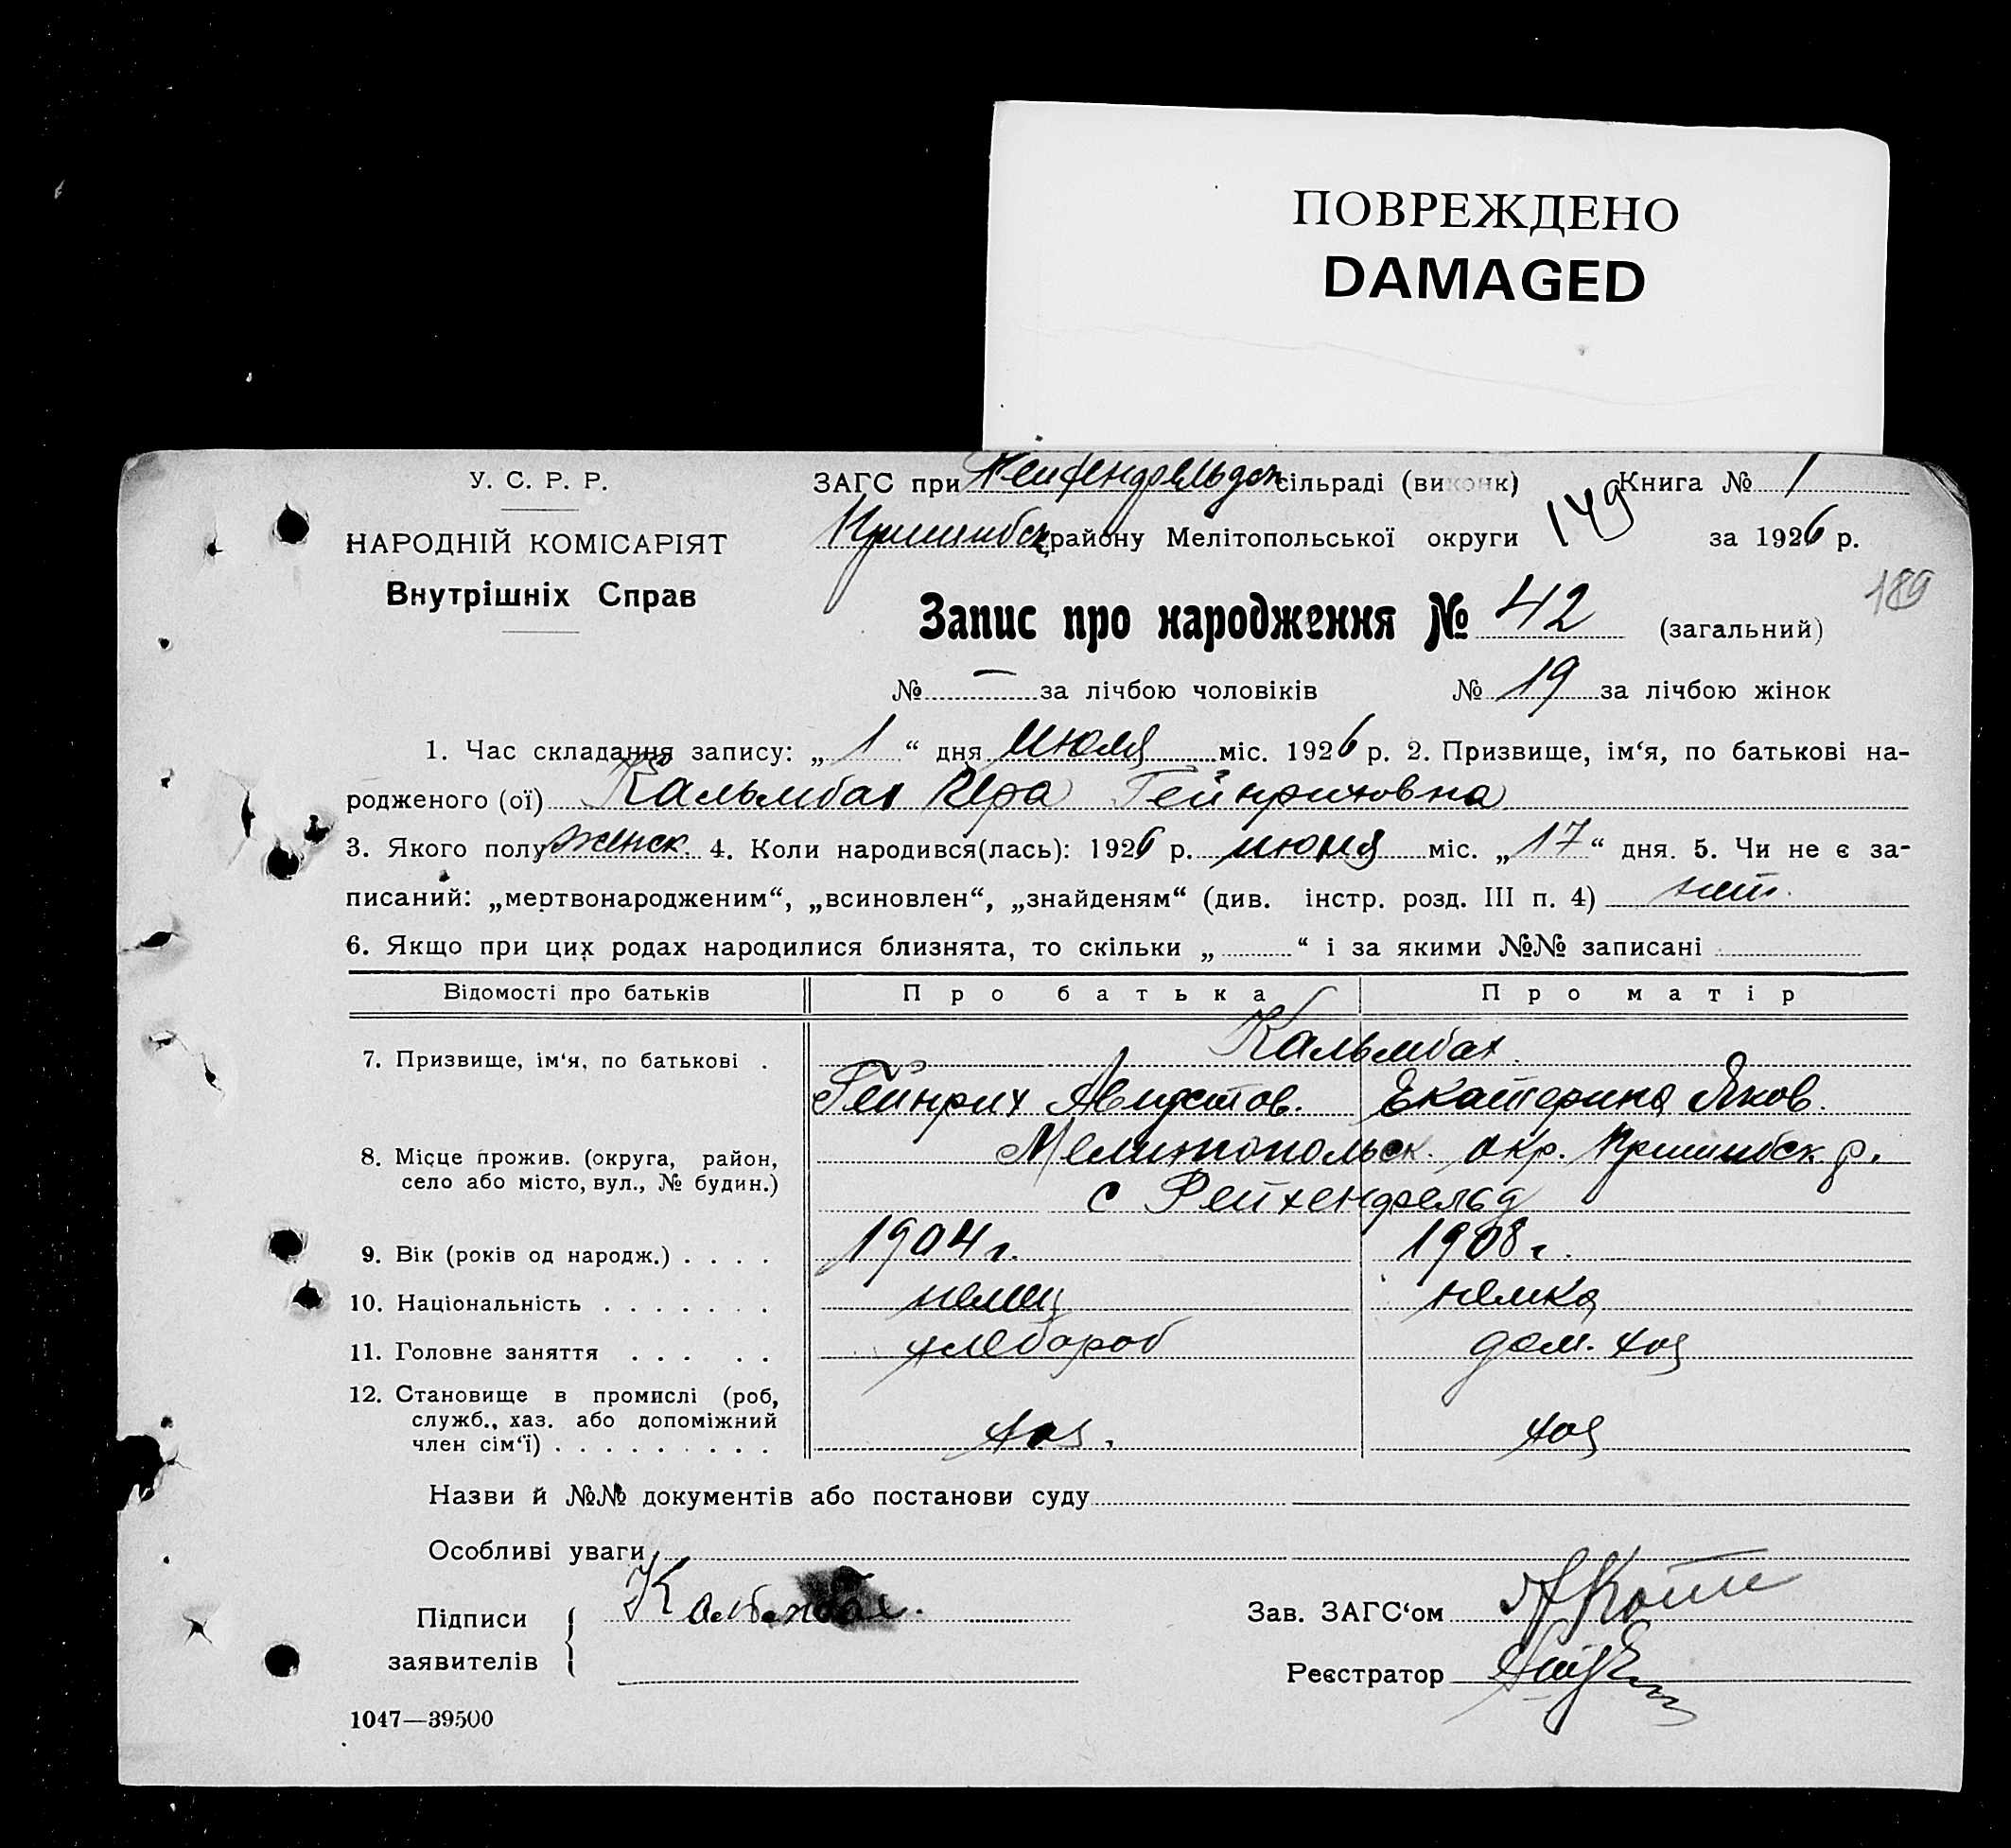 ПОВРЕЖДЕНО
DAMAGED
У. С. Р. Р.
НАРОДНІЙ КОМІСАРІЯТ
Внутрішніх Справ
ЗАГС при сільраді (виконк) Книга № 1
Пришибск району Мелітопольської округи 149 за 1926 р.
189
Запис про народження № 42 (загальний)
№ — за лічбою чоловіків № 19 за лічбою жінок
1. Час складання запису: „ 1 “ дня июля міс. 1926 р. 2. Призвище, ім‘я, по батькові на-
родженого (ої) Кальмбах Гейнриховна
3. Якого полу женск. 4. Коли народився(лась): 1926 р. июня міс. „ 17 “ дня. 5. Чи не є за-
писаний: „мертвонародженим“, „всиновлен“, „знайденям“ (див. інстр. розд. III п. 4) нет.
6. Якщо при цих родах народилися близнята, то скільки „ “ і за якими №№ записані
Відомості про батьків Про батька Про матір
7. Призвище, ім‘я, по батькові . Кальмбах.
Гейнрих Августов. Екатерина Яков.
8. Місце прожив. (округа, район,
село або місто, вул., № будин.)
Мелитопольск. окр. Пришибск р.
с Рейхенфельд
9. Вік (років од народж.) . . . . 1904 г. 1908 г.
10. Національність . . . . . . . немец немка
11. Головне заняття . . . . . хлебороб дом. хоз
12. Становище в промислі (роб,
служб., хаз. або допоміжний
член сім‘ї) . . . . . . . . . хоз. хоз
Назви й №№ документів або постанови суду
Особливі уваги
Підписи
заявителів
Зав. ЗАГС‘ом
Реєстратор
1047—39500